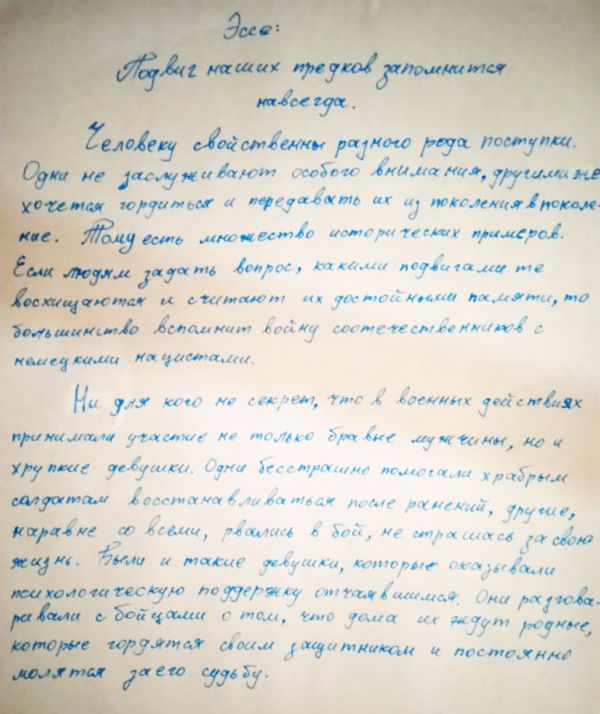 Эссе:
Подвиг наших предков запомнится
навсегда.
Человеку свойственны разного рода поступки.
Одни не заслуживают особого внимания, другими же
хочется гордиться и передавать их из поколения в поколе-
ние. Тому есть множество исторических примеров.
Если людям задать вопрос, какими подвигами те
восхищаются и считают их достойными памяти, то
большинство вспомнит войну соотечественников с
немецкими нацистами.
Ни для кого не секрет, что в военных действиях
принимали участие не только бравые мужчины, но и
хрупкие девушки. Одни бесстрашно помогали храбрым
солдатам восстанавливаться после ранений, другие,
наравне со всеми, рвались в бой, не страшась за свою
жизнь. Были и такие девушки, которые оказывали
психологическую поддержку отчаявшимся. Они разгова-
ривали с бойцами о том, что дома их ждут родные,
которые гордятся своим защитником и постоянно
молятся за его судьбу.